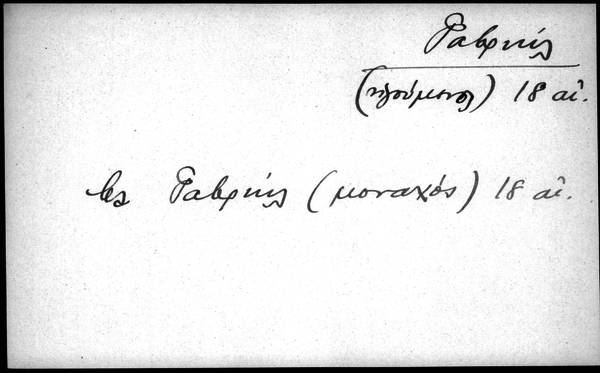 Γαβριήλ
(ηγούμενος) 18 αἰ.
βλ Γαβριήλ (μοναχός) 18 αἰ.